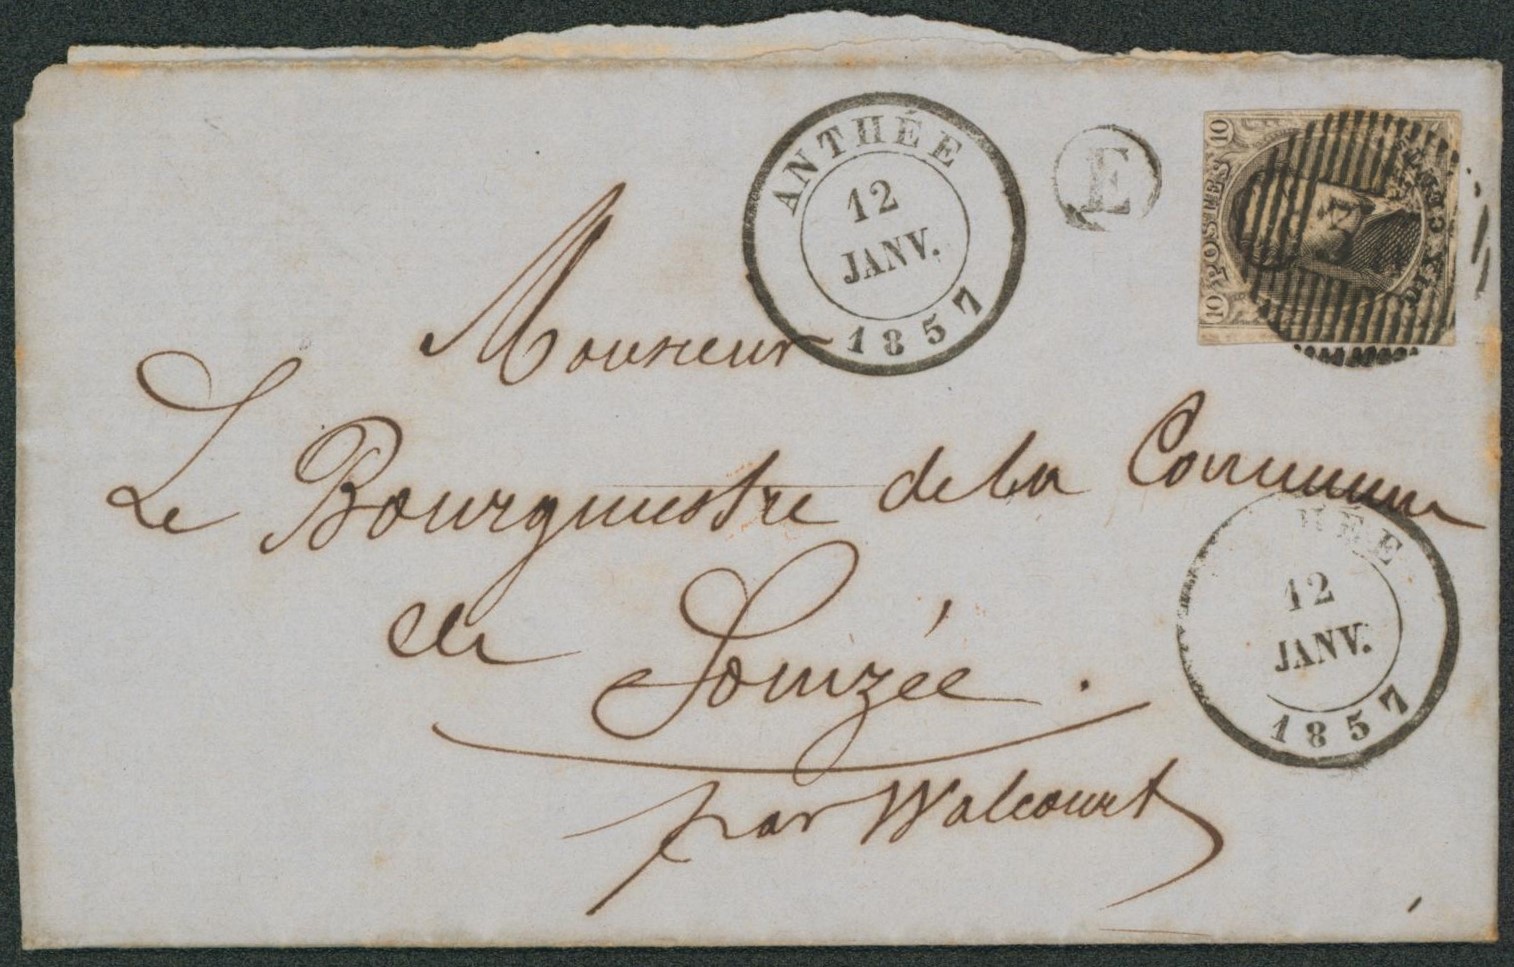 ANTHÉE
12
JANV.
1857
E
10 POSTES 10
DIX CENTIMES
Monsieur
Le Bourgmestre de la Commune
de Somzée.
par Walcourt
HÉE
12
JANV.
1857